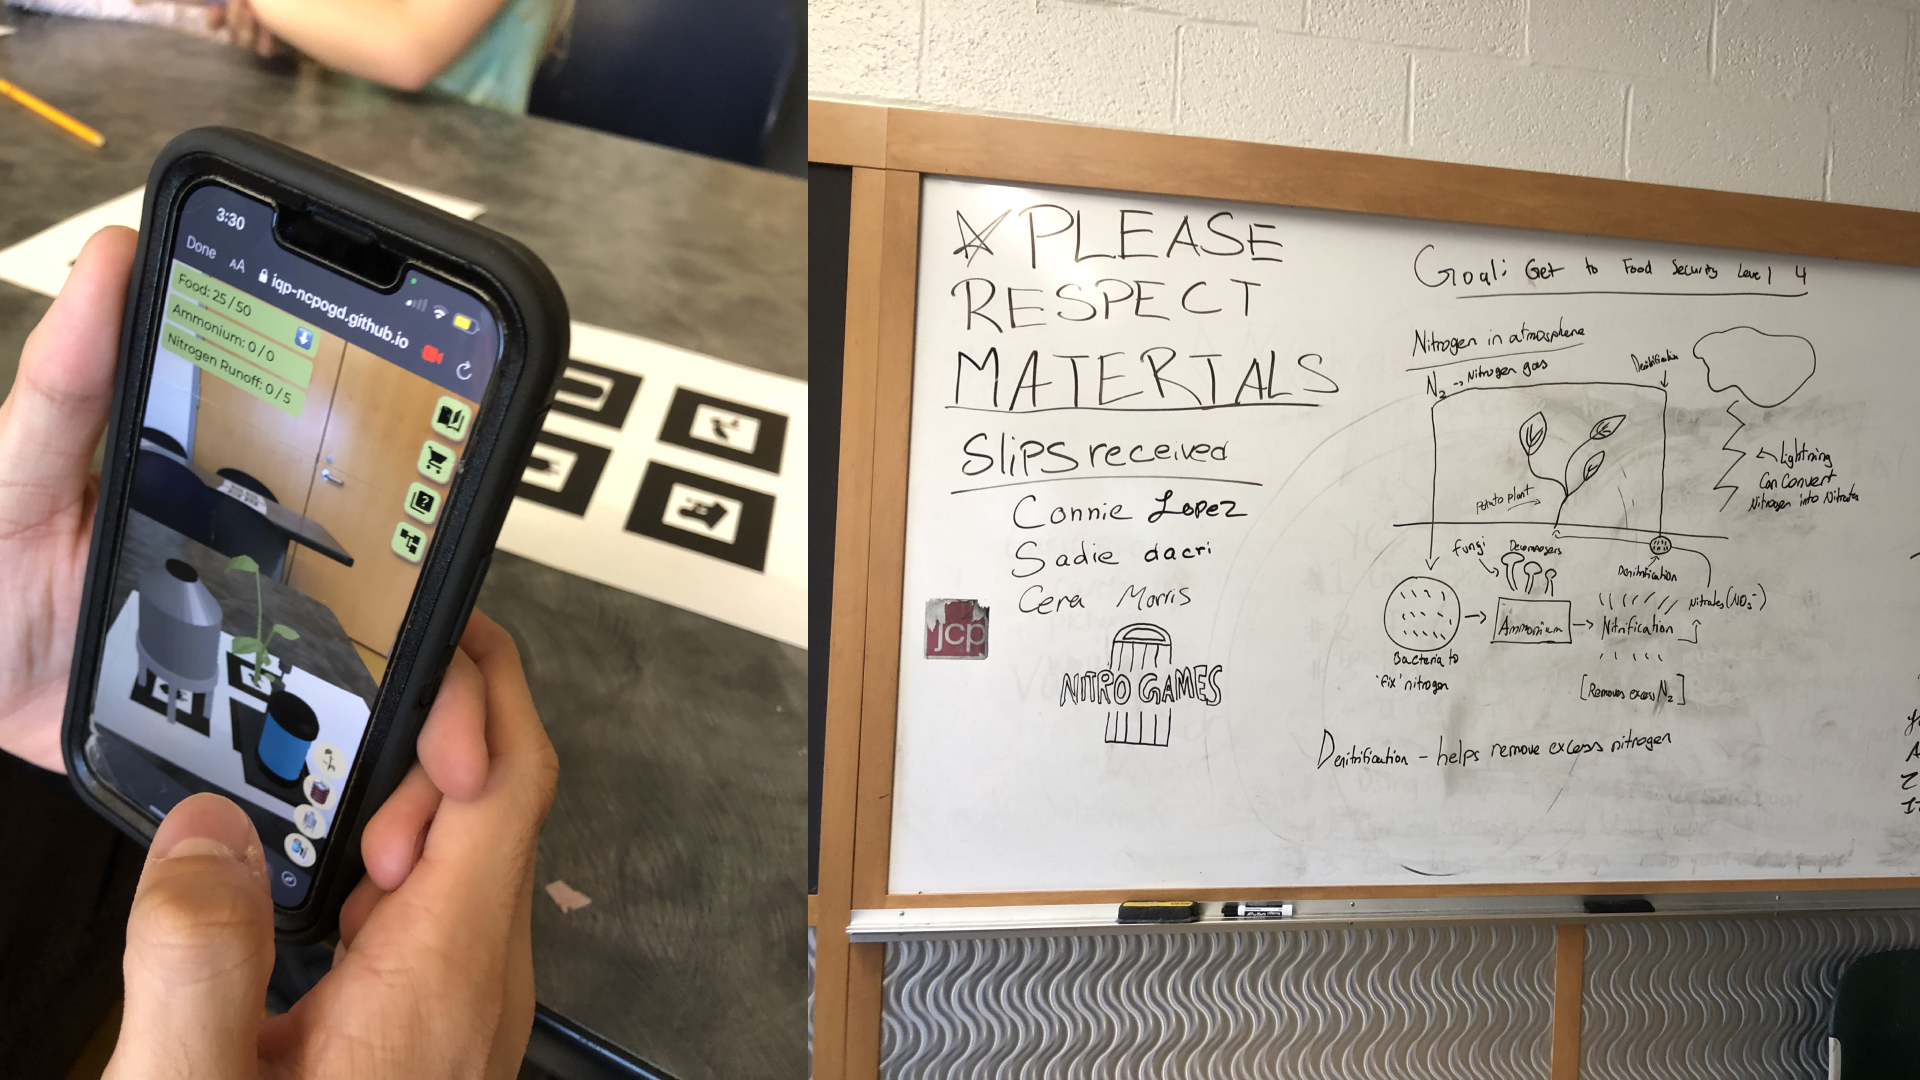 3:30
Done
AA
iqp-ncpogd.github.io
Food: 25 / 50
Ammonium: 0 / 0
Nitrogen Runoff: 0 / 5
PLEASE
RESPECT
MATERIALS
Slips received
Connie Lopez
Sadie dacri
Cera Morris
jcp
NITRO GAMES
Goal: Get to Food Security Level 4
Nitrogen in atmosphere
N2 → Nitrogen gas
Denitrification
← lightning
Can Convert
Nitrogen into Nitrates
Potato plant
Fungi
Decomposers
Denitrification
Nitrates (NO3-)
→ Ammonium → Nitrification
Bacteria to
'fix' nitrogen
[Removes excess N2]
Denitrification - helps remove excess nitrogen